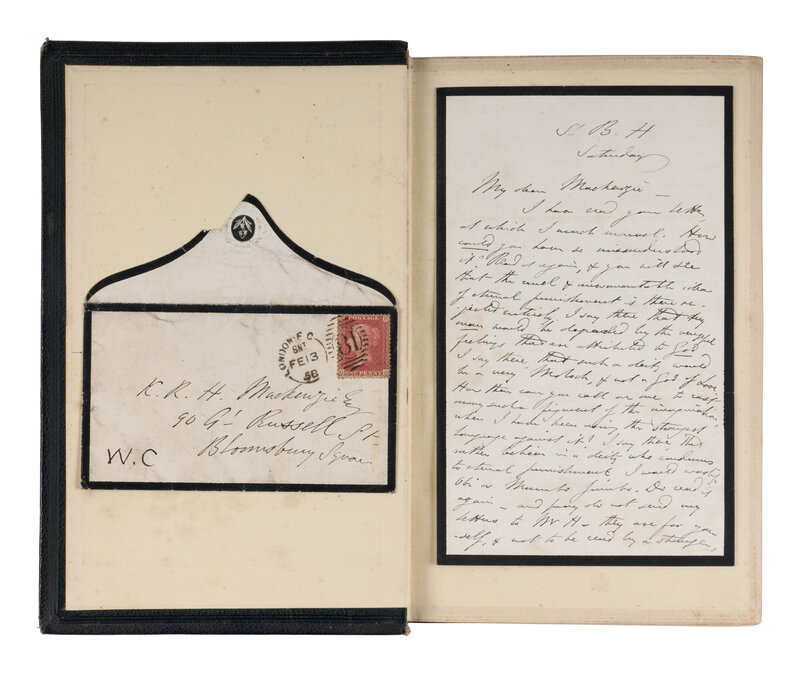 LONDON·E C
FE 13
58
POSTAGE
ONE PENNY
K. R. H. Mackenzie Esq
90 Gt Russell St
Bloomsbury Square
W.C
St B. H
Saturday
My dear Mackenzie —
I have read your letter
at which I much marvel. How
could you have so misunderstood
it? Read it again, & you will see
that the cruel & idea
of eternal punishment is there re-
jected entirely. I say there that any
man would be degraded by the
feelings that are attributed to God
I say there that such a deity would
be a very Moloch, & not a God of Love.
How then can you call on me to cast
away such a figment of the imagination,
when I have been using the strongest
language against it? I say there that
rather believe in a deity who condemns
to eternal punishment, I would worship
Obi or Mumbo Jumbo. Do read it
again — and pray do not send my
letters to Mr H — they are for your
-self, & not to be read by a stranger,